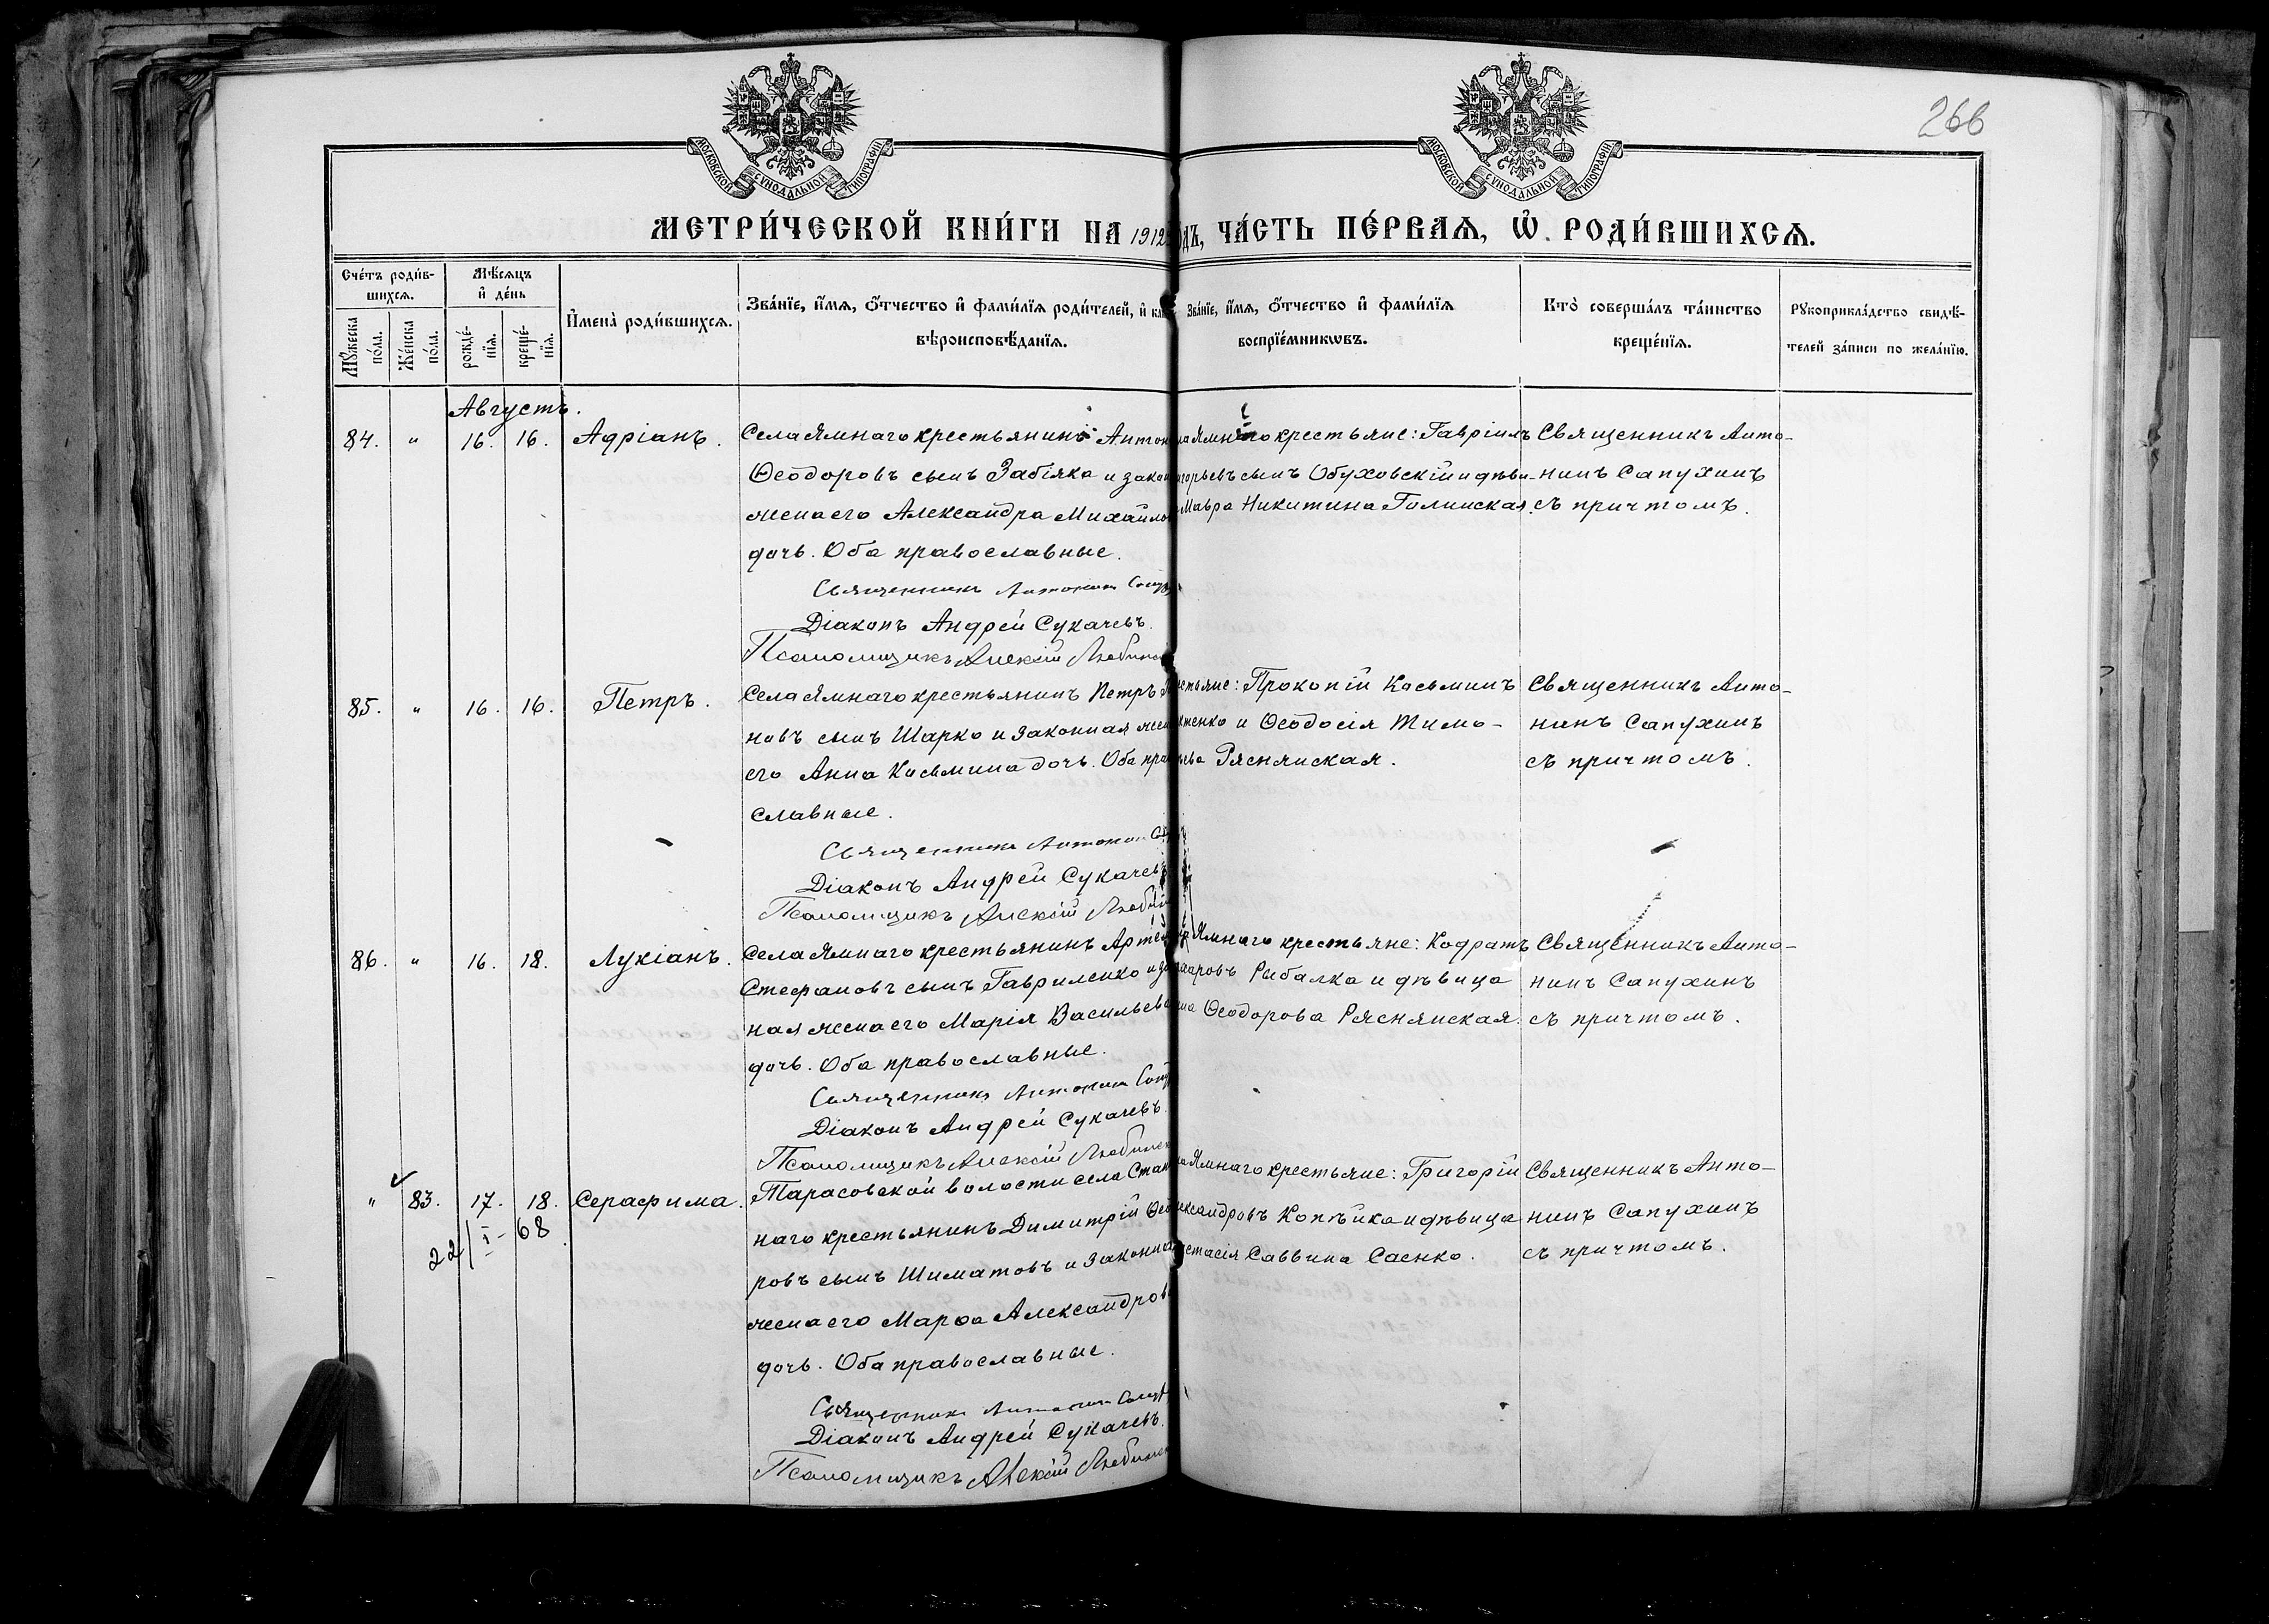 266
МОСКОВСКОЙ СѴНОДАЛЬНОЙ ТИПОГРАФІИ
МОСКОВСКОЙ СѴНОДАЛЬНОЙ ТИПОГРАФІИ
МЕТРИ́ЧЕСКОЙ КНИ́ГИ НА 1912 ЧА́СТЬ ПЕ́РВАѦ, Ѿ РОДИ́ВШИХСѦ.
Сче́тъ роди́в-
шихсѧ.
Мѣ́сѧцъ
и҆ де́нь
Мꙋ́жеска
по́ла.
Же́нска
по́ла.
рожде́-
нїѧ.
креще́-
нїѧ.
И҆мена̀ роди́вшихсѧ.
Зва́нїе, и҆́мѧ, ѻ҆́тчество и҆ фами́лїѧ роди́телей, и҆
вѣроисповѣ́данїѧ.
Зва́нїе, и҆́мѧ, ѻ҆́тчество и҆ фами́лїѧ
воспрїе́мникѡвъ.
Кто̀ соверша́лъ та́инство
креще́нїѧ.
Рꙋкоприкла́дство свидѣ́-
телей за́писи по жела́нїю.
Августъ.
84. „ 16. 16. Адріанъ.
Села Ямнаго крестьянинъ Антон
Ѳеодоровъ сынъ Забіяка и закон
жена его Александра Михайло
дочь. Оба православные.
Священникъ Антонин
Діаконъ Андрей Сукачевъ.
Псаломщикъ Алексій
Ямнаго крестьяне: Гавріилъ
горьевъ сынъ Обуховскій и дѣви-
Мавра Никитина Голинская.
Священникъ Анто-
нинъ Сапухинъ
съ причтомъ.
85. „ 16. 16. Петръ.
Села Ямнаго крестьянинъ Петръ
новъ сынъ Шарко и законная жен
его Анна Косьмина дочь. Оба пра
славные.
Священникъ Антонин
Діаконъ Андрей Сукачевъ
Псаломщикъ Алексій
стьяне: Прокопій Косьминъ
ктенко и Ѳеодосія Тимо-
ѳьева Ряснянская.
Священникъ Анто-
нинъ Сапухинъ
съ причтомъ.
86. „ 16. 18. Лукіанъ.
Села Ямнаго крестьянинъ Артем
Стефановъ сынъ Гавриленко и за
ная жена его Марія Васильева
дочь. Оба православные.
Священникъ Антонин
Діаконъ Андрей Сукачевъ.
Псаломщикъ Алексій
Ямнаго крестьяне: Кодратъ
заровъ Рыбалка и дѣвица
Ѳеодорова Ряснянская.
Священникъ Анто-
нинъ Сапухинъ
съ причтомъ.
„ 83. 17. 18. Серафима.
22/I-68
Тарасовской волости села
наго крестьянинъ Димитрій Ѳео
ровъ сынъ Шиматовъ и законна
жена его Марѳа Александров
дочь. Оба православные.
Священникъ Антонин
Діаконъ Андрей Сукачевъ.
Псаломщикъ Алексій
Ямнаго крестьяне: Григорій
ександровъ Копѣйка и дѣвица
стасія Саввина Саенко.
Священникъ Анто-
нинъ Сапухинъ
съ причтомъ.